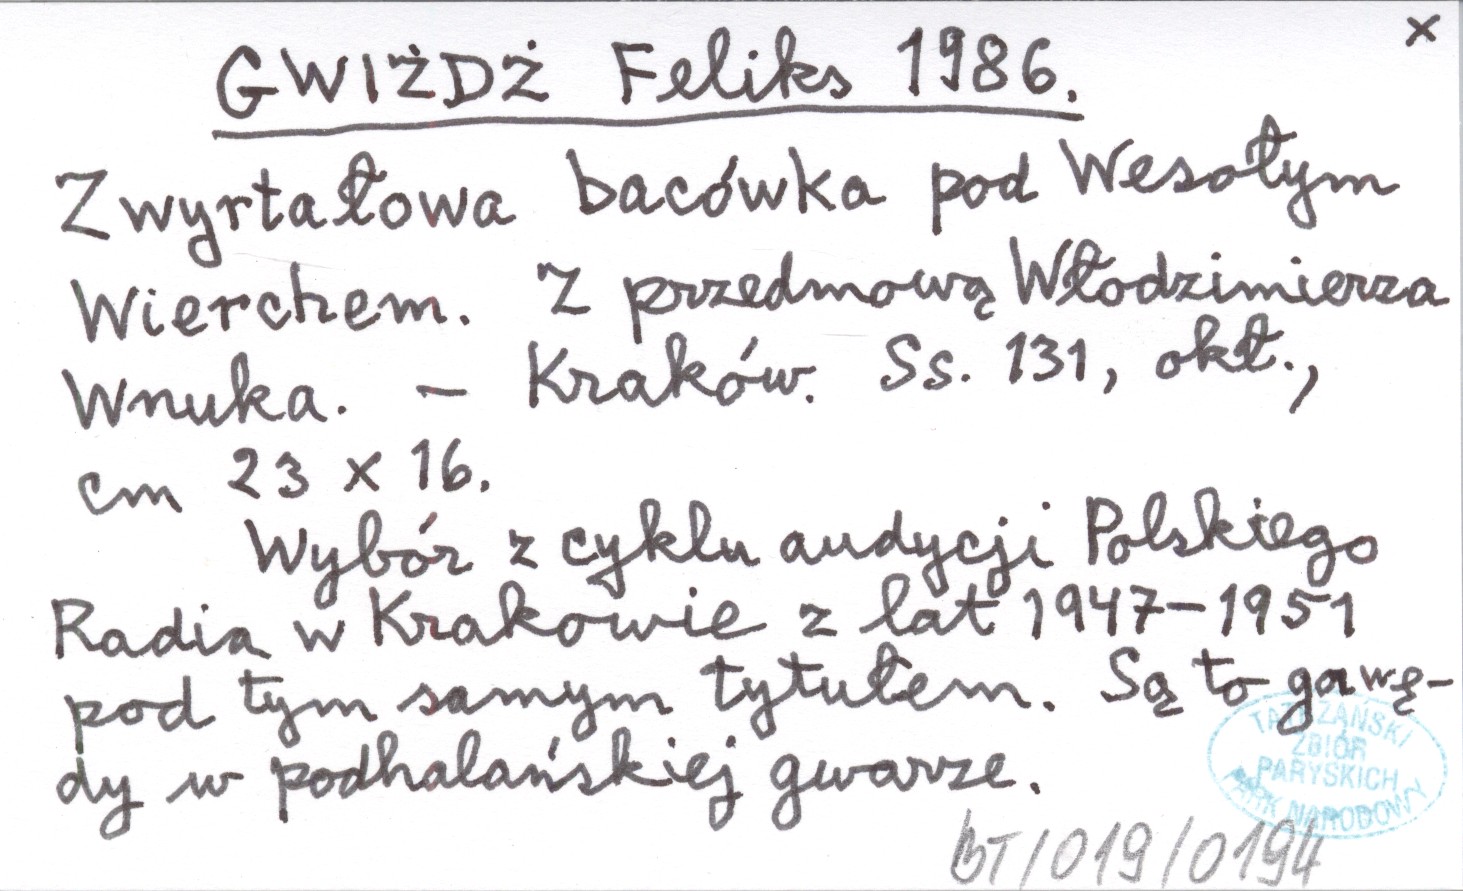 x
GWIŻDŻ Feliks 1986.
Zwyrtałowa bacówka pod Wesołym
Wierchem. Z przedmową Włodzimierza
Wnuka. – Kraków. Ss. 131, okł.,
cm 23 x 16.
Wybór z cyklu audycji Polskiego
Radia w Krakowie z lat 1947–1951
pod tym samym tytułem. Są to gawę-
dy w podhalańskiej gwarze.
TATRZAŃSKI
ZBIÓR
PARYSKICH
PARK NARODOWY
BT/019/0194